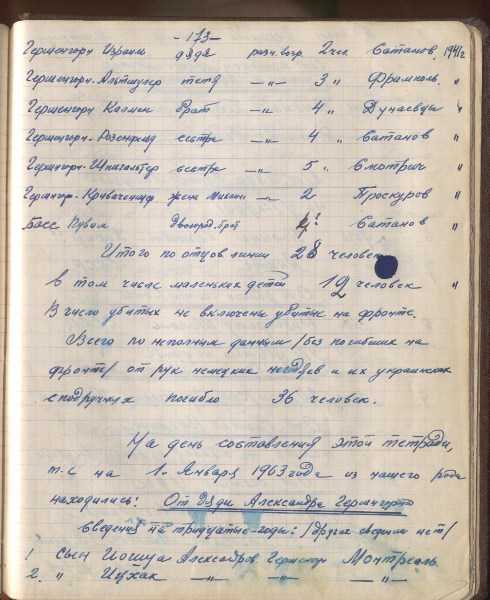 -173-
Гершенгорн Израиль дядя разн. возр. 2 чел. Сатанов 1941 г
Гершенгорн-Альтшулер тетя —"— 3 " Фрамполь "
Гершенгорн Калман брат —"— 4 " Дунаевцы "
Гершенгорн-Розенфельд сестра —"— 4 " Сатанов "
Гершенгорн-Шпигальтер сестра —"— 5 " Смотрич "
Гершгорн-Криваченицер жена —"— 2 Проскуров "
Басс Рувим двоюрод. брат Сатанов "
Итого по отцов. линии 28 человек
в том числе маленьких детей 12 человек "
В число убитых не включены убитые на фронте.
Всего по неполным данным /без погибших на
фронте/ от рук немецких негодяев и их украинских
сподручных погибло 36 человек.
На день составления этой тетради,
т.е на 1. Января 1963 года из нашего рода
находились: От дяди Александра Гершенгорна
сведения на тридцатые годы: /других сведений нет/
1 Сын Иошуа Александров. Гершенгорн Монтреаль.
2. " Ицхак —"— —"— —"—